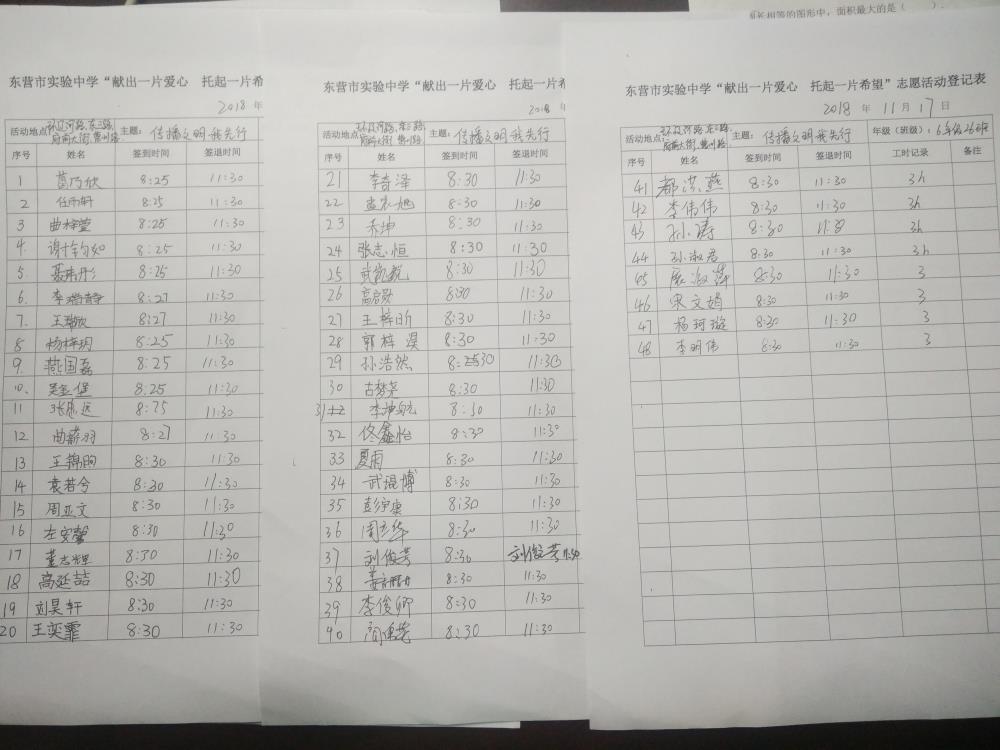 长相等的图形中，面积最大的是（　　）.
东营市实验中学“献出一片爱心　托起一片希
2018 年
活动地点 府前大街 主题： 传播文明我先行
序号 姓名 签到时间 签退时间
1 葛乃欣 8:25 11:30
2 任雨轩 8:25 11:30
3 曲梓萱 8:25 11:30
4. 8:25 11:30
5 8:25 11:30
6. 李瑞静 8:27 11:30
7. 王瑞欣 8:27 11:30
8 杨梓玥 8:25 11:30
9. 燕国磊 8:25 11:30
10. 8:25 11:30
11 8:25 11:30
12 曲薪羽 8:27 11:30
13 8:30 11:30
14 袁若兮 8:30 11:30
15 周亚文 8:30 11:30
16 左安馨 8:30 11:30
17 董志耀 8:30 11:30
18 高延喆 8:30 11:30
19 刘昊轩 8:30 11:30
20 王奕霏 8:30 11:30
东营市实验中学“献出一片爱心　托起一片希
2018 年
活动地点 府前大街 主题： 传播文明我先行
序号 姓名 签到时间 签退时间
21 李奇泽 8:30 11:30
22 8:30 11:30
23 乔坤 8:30 11:30
24 张志恒 8:30 11:30
25 武凯锐 8:30 11:30
26 8:30 11:30
27 王梓昕 8:30 11:30
28 郭梓淏 8:30 11:30
29 孙浩然 8:2530 11:30
30 古梦尧 8:30 11:30
31 李坤航 8:30 11:30
32 佟鑫怡 8:30 11:30
33 夏雨 8:30 11:30
34 武琨博 8:30 11:30
35 8:30 11:30
36 周彦华 8:30 11:30
37 刘俊芳 8:30 刘俊芳 11:30
38 8:30 11:30
39 李俊卿 8:30 11:30
40 8:30 11:30
东营市实验中学“献出一片爱心　托起一片希望”志愿活动登记表
2018 年 11 月 17 日
活动地点 府前大街 主题： 传播文明我先行 年级（班级）： 6年级26班
序号 姓名 签到时间 签退时间 工时记录 备注
41 都洪燕 8:30 11:30 3h
42 李伟伟 8:30 11:30 3h
43 孙涛 8:30 11:30 3h
44 孙淑君 8:30 11:30 3h
45 8:30 11:30 3
46 宋文娟 8:30 11:30 3
47 杨珂璇 8:30 11:30 3
48 李明伟 8:30 11:30 3